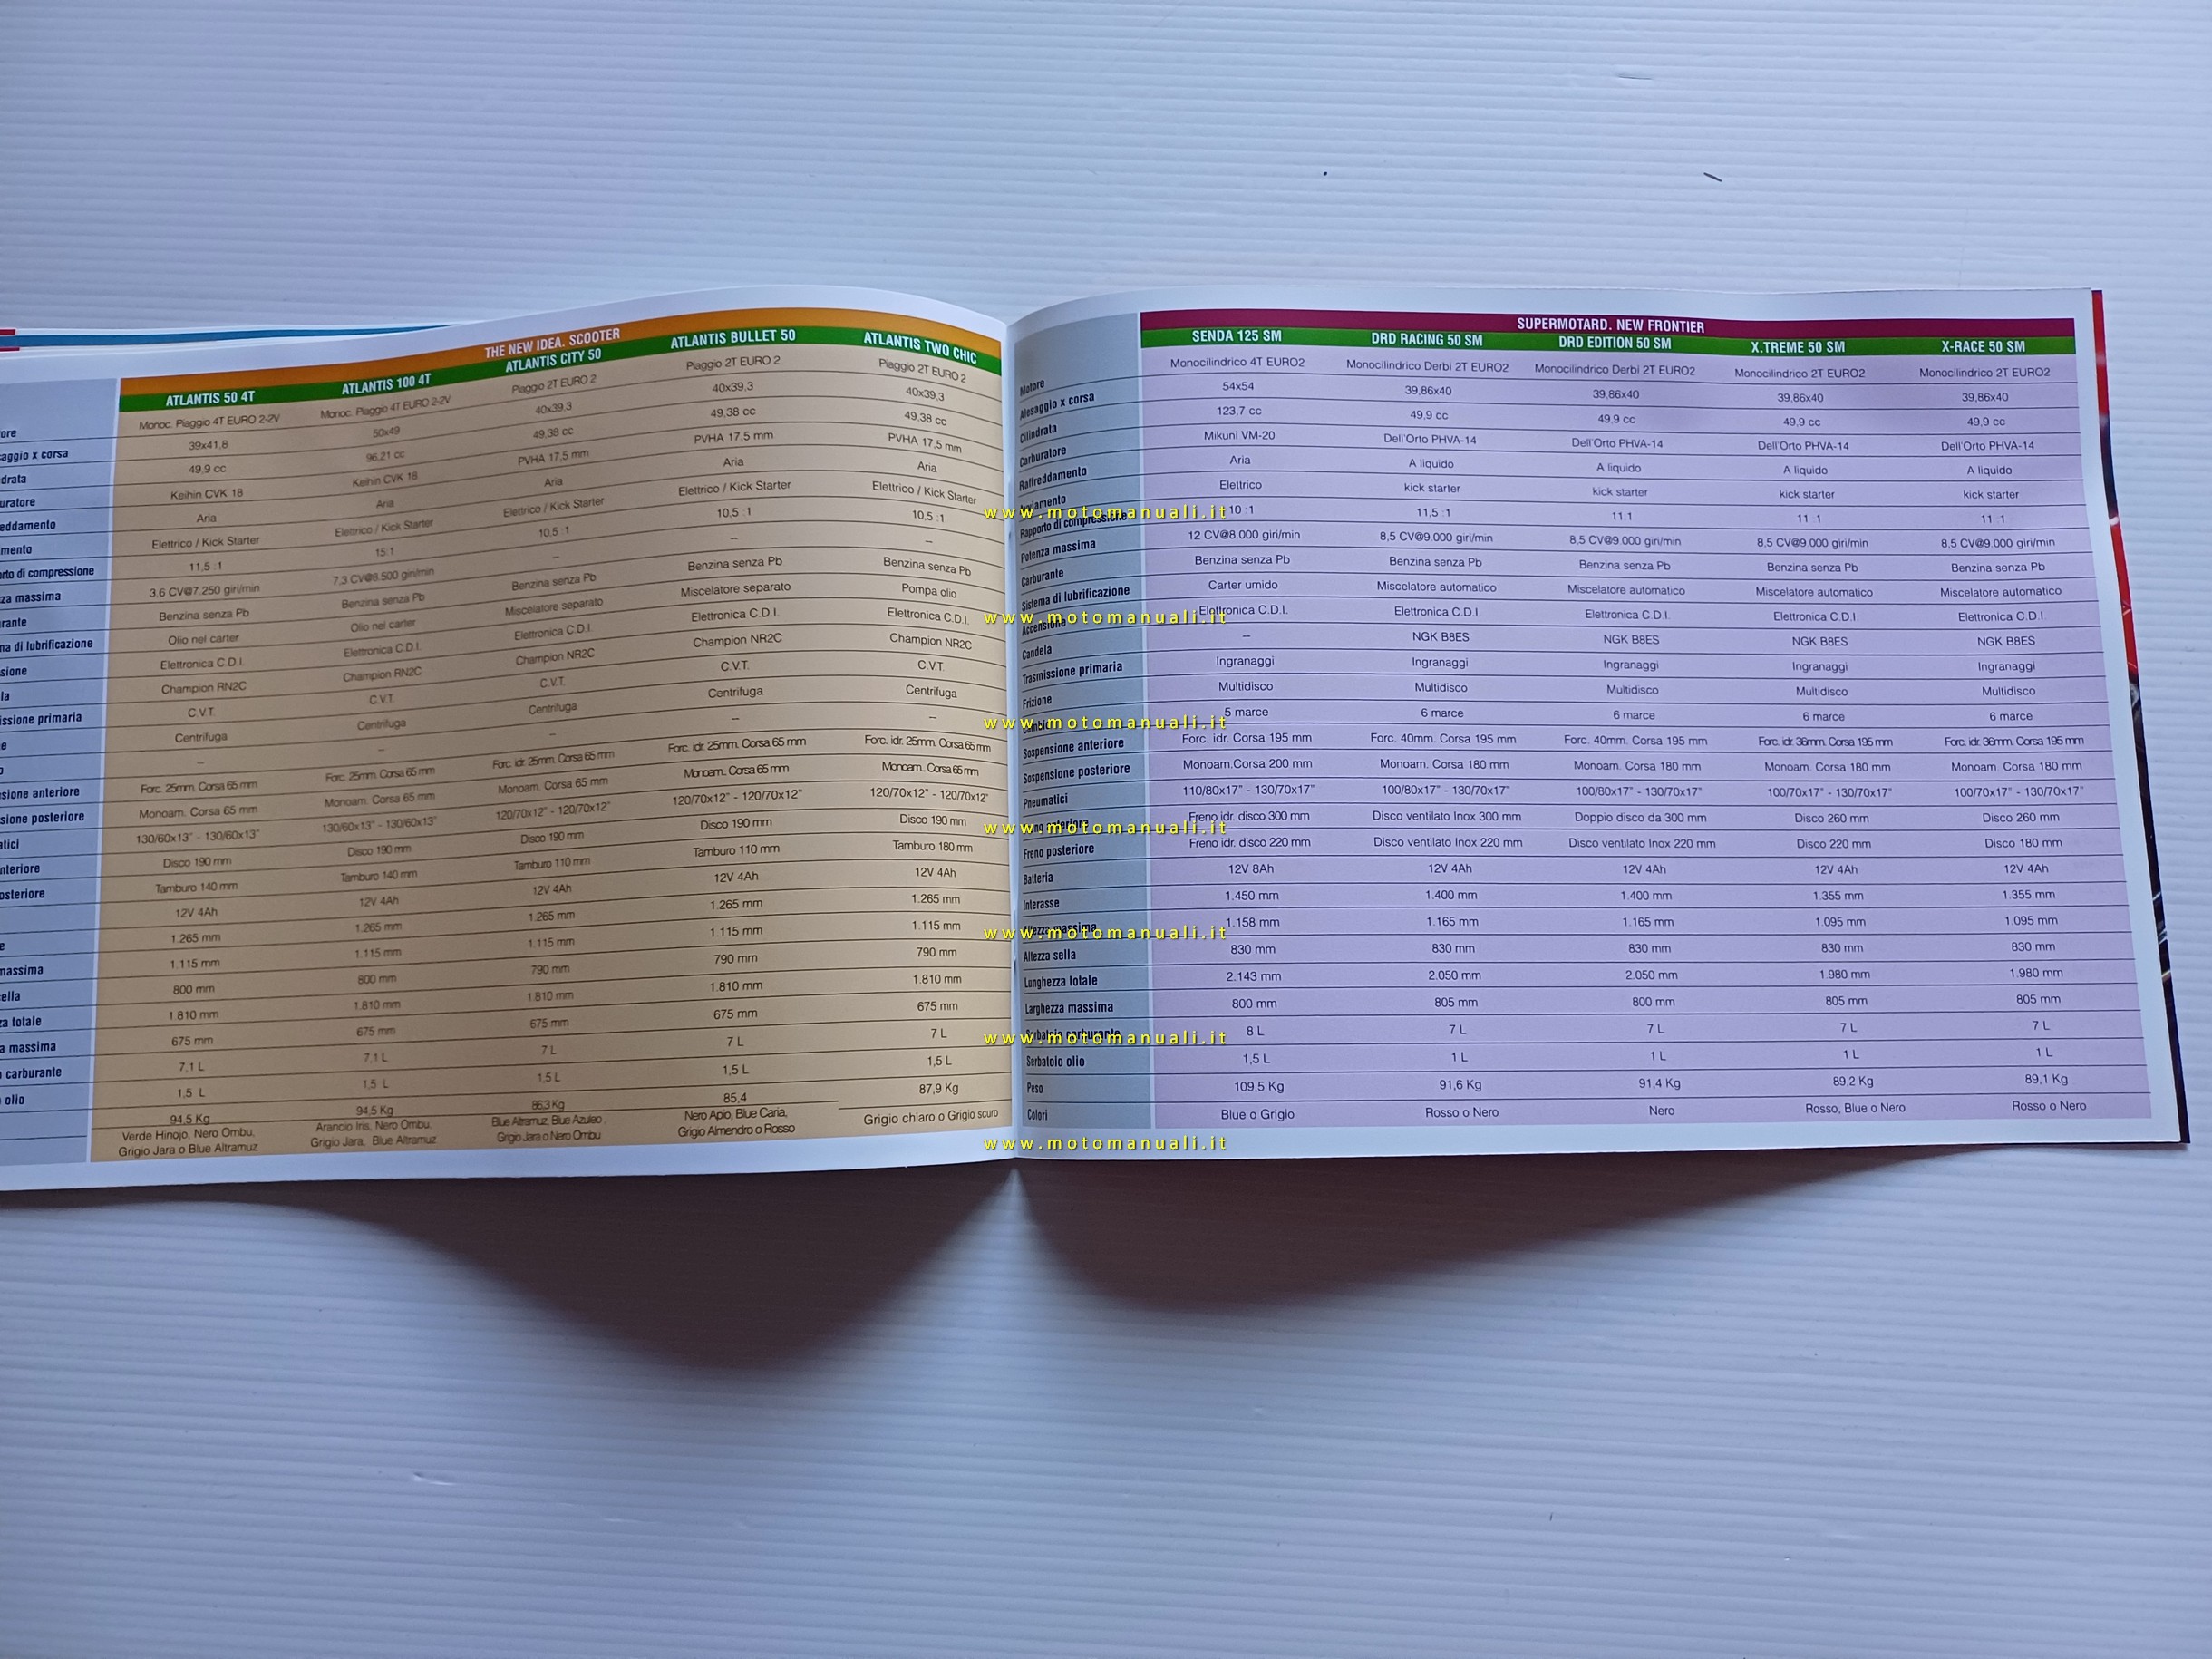 THE NEW IDEA. SCOOTER
ATLANTIS 50 4T ATLANTIS 100 4T ATLANTIS CITY 50 ATLANTIS BULLET 50 ATLANTIS TWO CHIC
ore Monoc. Piaggio 4T EURO 2-2V Monoc. Piaggio 4T EURO 2-2V Piaggio 2T EURO 2 Piaggio 2T EURO 2 Piaggio 2T EURO 2
aggio x corsa 39x41,8 50x49 40x39,3 40x39,3 40x39,3
drata 49,9 cc 96,21 cc 49,38 cc 49,38 cc 49,38 cc
uratore Keihin CVK 18 Keihin CVK 18 PVHA 17,5 mm PVHA 17,5 mm PVHA 17,5 mm
eddamento Aria Aria Aria Aria Aria
mento Elettrico / Kick Starter Elettrico / Kick Starter Elettrico / Kick Starter Elettrico / Kick Starter Elettrico / Kick Starter
rto di compressione 11,5 :1 15:1 10,5 :1 10,5 :1 10,5 :1
za massima 3,6 CV@7.250 giri/min 7,3 CV@8.500 giri/min – – –
rante Benzina senza Pb Benzina senza Pb Benzina senza Pb Benzina senza Pb Benzina senza Pb
na di lubrificazione Olio nel carter Olio nel carter Miscelatore separato Miscelatore separato Pompa olio
sione Elettronica C.D.I. Elettronica C.D.I. Elettronica C.D.I. Elettronica C.D.I. Elettronica C.D.I.
la Champion RN2C Champion RN2C Champion NR2C Champion NR2C Champion NR2C
issione primaria C.V.T. C.V.T. C.V.T. C.V.T. C.V.T.
e Centrifuga Centrifuga Centrifuga Centrifuga Centrifuga
o – – – – –
sione anteriore Forc. 25mm. Corsa 65 mm Forc. 25mm. Corsa 65 mm Forc. idr. 25mm. Corsa 65 mm Forc. idr. 25mm. Corsa 65 mm Forc. idr. 25mm. Corsa 65 mm
sione posteriore Monoam. Corsa 65 mm Monoam. Corsa 65 mm Monoam. Corsa 65 mm Monoam. Corsa 65 mm Monoam. Corsa 65 mm
atici 130/60x13" - 130/60x13" 130/60x13" - 130/60x13" 120/70x12" - 120/70x12" 120/70x12" - 120/70x12" 120/70x12" - 120/70x12"
nteriore Disco 190 mm Disco 190 mm Disco 190 mm Disco 190 mm Disco 190 mm
osteriore Tamburo 140 mm Tamburo 140 mm Tamburo 110 mm Tamburo 110 mm Tamburo 180 mm
12V 4Ah 12V 4Ah 12V 4Ah 12V 4Ah 12V 4Ah
e 1.265 mm 1.265 mm 1.265 mm 1.265 mm 1.265 mm
massima 1.115 mm 1.115 mm 1.115 mm 1.115 mm 1.115 mm
ella 800 mm 800 mm 790 mm 790 mm 790 mm
za totale 1.810 mm 1.810 mm 1.810 mm 1.810 mm 1.810 mm
a massima 675 mm 675 mm 675 mm 675 mm 675 mm
carburante 7,1 L 7,1 L 7 L 7 L 7 L
olio 1,5 L 1,5 L 1,5 L 1,5 L 1,5 L
94,5 Kg 94,5 Kg 86,3 Kg 85,4 87,9 Kg
Verde Hinojo, Nero Ombu, Arancio Iris, Nero Ombu, Blue Altramuz, Blue Azuleo, Nero Apio, Blue Caria, Grigio chiaro o Grigio scuro
Grigio Jara o Blue Altramuz Grigio Jara, Blue Altramuz Grigio Jara o Nero Ombu Grigio Almendro o Rosso
SUPERMOTARD. NEW FRONTIER
SENDA 125 SM DRD RACING 50 SM DRD EDITION 50 SM X.TREME 50 SM X-RACE 50 SM
Motore Monocilindrico 4T EURO2 Monocilindrico Derbi 2T EURO2 Monocilindrico Derbi 2T EURO2 Monocilindrico 2T EURO2 Monocilindrico 2T EURO2
Alesaggio x corsa 54x54 39,86x40 39,86x40 39,86x40 39,86x40
Cilindrata 123,7 cc 49,9 cc 49,9 cc 49,9 cc 49,9 cc
Carburatore Mikuni VM-20 Dell'Orto PHVA-14 Dell'Orto PHVA-14 Dell'Orto PHVA-14 Dell'Orto PHVA-14
Raffreddamento Aria A liquido A liquido A liquido A liquido
Avviamento Elettrico kick starter kick starter kick starter kick starter
Rapporto di compressione 10 :1 11,5 :1 11:1 11 :1 11 :1
Potenza massima 12 CV@8.000 giri/min 8,5 CV@9.000 giri/min 8,5 CV@9.000 giri/min 8,5 CV@9.000 giri/min 8,5 CV@9.000 giri/min
Carburante Benzina senza Pb Benzina senza Pb Benzina senza Pb Benzina senza Pb Benzina senza Pb
Sistema di lubrificazione Carter umido Miscelatore automatico Miscelatore automatico Miscelatore automatico Miscelatore automatico
Accensione Elettronica C.D.I. Elettronica C.D.I. Elettronica C.D.I. Elettronica C.D.I. Elettronica C.D.I.
Candela – NGK B8ES NGK B8ES NGK B8ES NGK B8ES
Trasmissione primaria Ingranaggi Ingranaggi Ingranaggi Ingranaggi Ingranaggi
Frizione Multidisco Multidisco Multidisco Multidisco Multidisco
Cambio 5 marce 6 marce 6 marce 6 marce 6 marce
Sospensione anteriore Forc. idr. Corsa 195 mm Forc. 40mm. Corsa 195 mm Forc. 40mm. Corsa 195 mm Forc. idr. 36mm. Corsa 195 mm Forc. idr. 36mm. Corsa 195 mm
Sospensione posteriore Monoam.Corsa 200 mm Monoam. Corsa 180 mm Monoam. Corsa 180 mm Monoam. Corsa 180 mm Monoam. Corsa 180 mm
Pneumatici 110/80x17" - 130/70x17" 100/80x17" - 130/70x17" 100/80x17" - 130/70x17" 100/70x17" - 130/70x17" 100/70x17" - 130/70x17"
Freno anteriore Freno idr. disco 300 mm Disco ventilato Inox 300 mm Doppio disco da 300 mm Disco 260 mm Disco 260 mm
Freno posteriore Freno idr. disco 220 mm Disco ventilato Inox 220 mm Disco ventilato Inox 220 mm Disco 220 mm Disco 180 mm
Batteria 12V 8Ah 12V 4Ah 12V 4Ah 12V 4Ah 12V 4Ah
Interasse 1.450 mm 1.400 mm 1.400 mm 1.355 mm 1.355 mm
Altezza massima 1.158 mm 1.165 mm 1.165 mm 1.095 mm 1.095 mm
Altezza sella 830 mm 830 mm 830 mm 830 mm 830 mm
Lunghezza totale 2.143 mm 2.050 mm 2.050 mm 1.980 mm 1.980 mm
Larghezza massima 800 mm 805 mm 800 mm 805 mm 805 mm
Serbatoio carburante 8 L 7 L 7 L 7 L 7 L
Serbatoio olio 1,5 L 1 L 1 L 1 L 1 L
Peso 109,5 Kg 91,6 Kg 91,4 Kg 89,2 Kg 89,1 Kg
Colori Blue o Grigio Rosso o Nero Nero Rosso, Blue o Nero Rosso o Nero
www.motomanuali.it
www.motomanuali.it
www.motomanuali.it
www.motomanuali.it
www.motomanuali.it
www.motomanuali.it
www.motomanuali.it